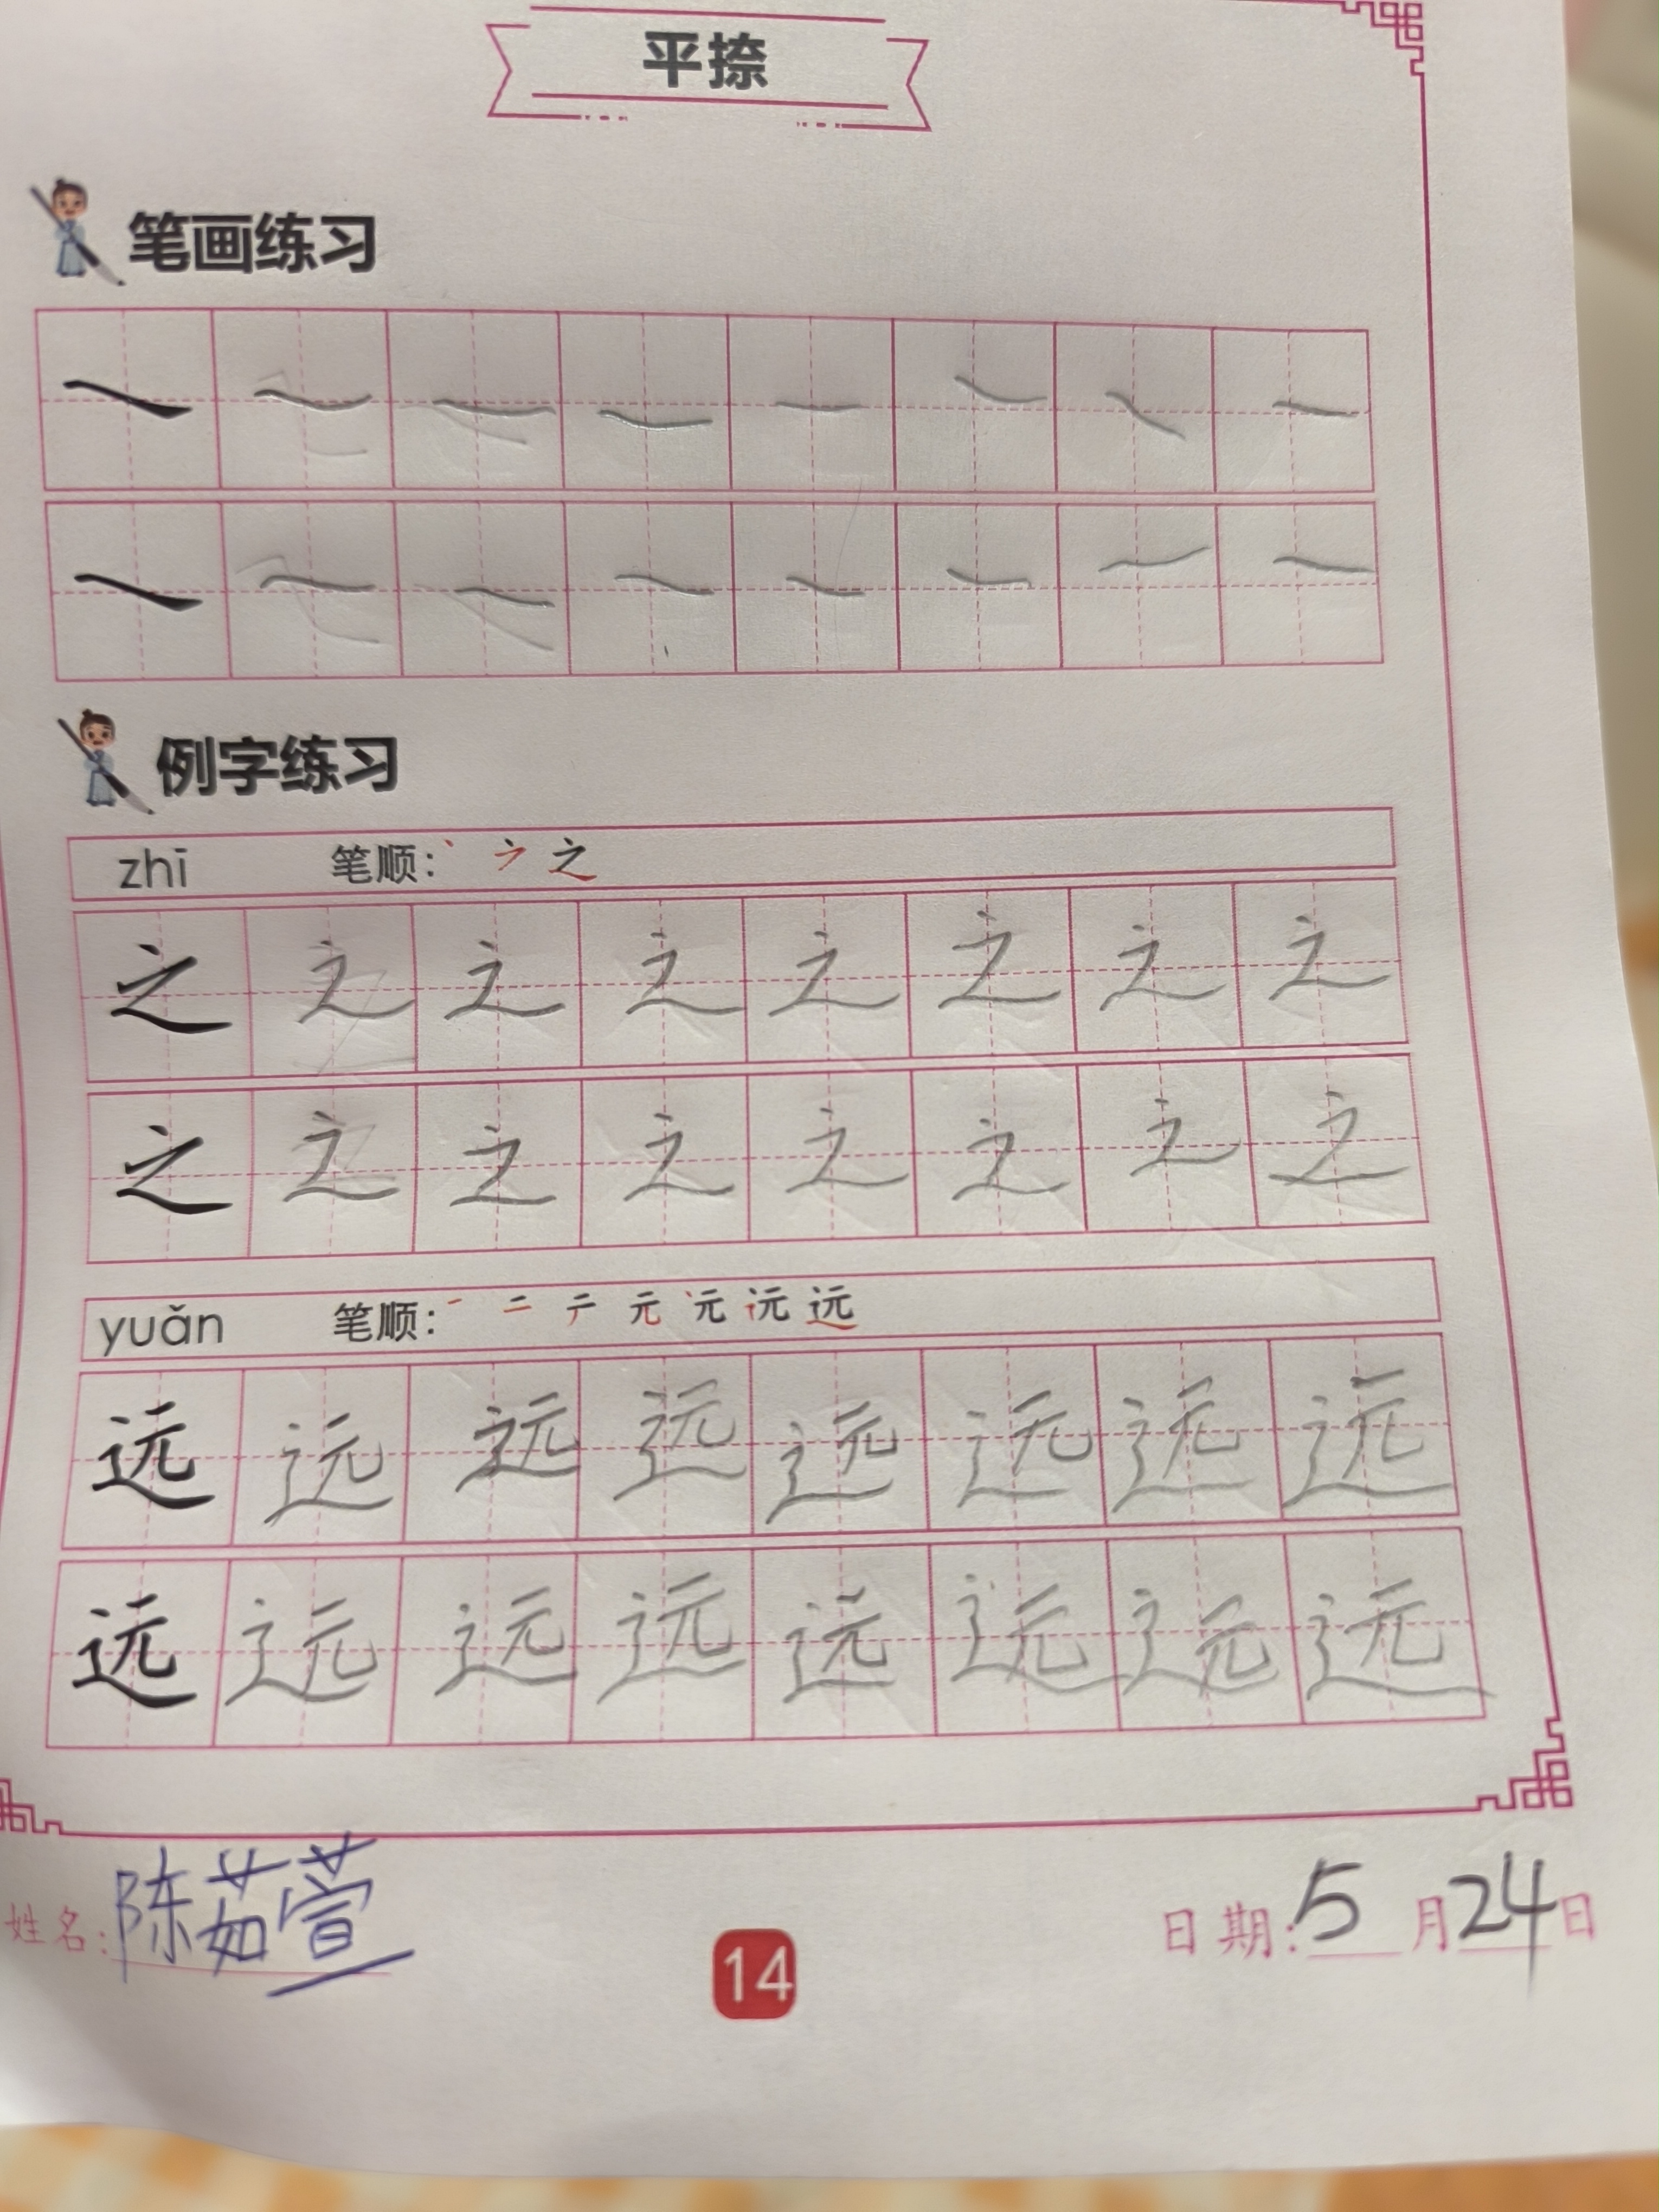 平捺
笔画练习
例字练习
zhī 笔顺： 丶 之
之 之 之 之 之 之 之 之
之 之 之 之 之 之 之 之
yuǎn 笔顺： 一 二 テ 元 远
远 远 远 远 远 远 远 远
远 远 远 远 远 远 远 远
姓名：陈茹萱
14
日期：5月24日